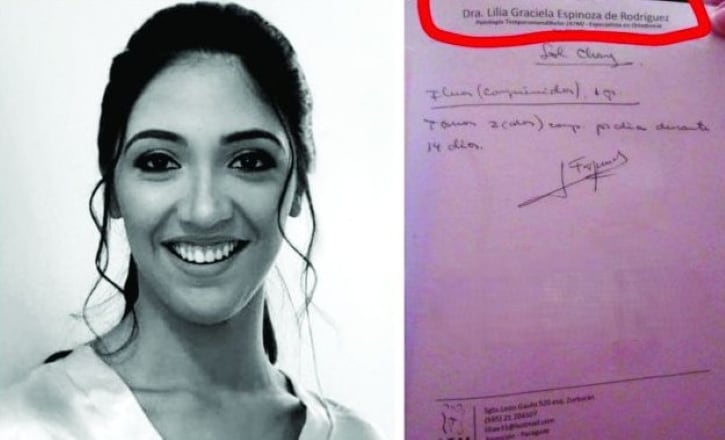 Dra. Lilia Graciela Espinoza de Rodríguez
Patología Temporomandibular (ATM) - Especialista en Ortodoncia
Sol Chav
(comprimidos), 1
Tomar 2 (dos) comp. p/ día durante
14 días.
Sgto. León Gauto 520 esq. Zurbarán
(595) 21 206507
@hotmail.com
Asunción - Paraguay